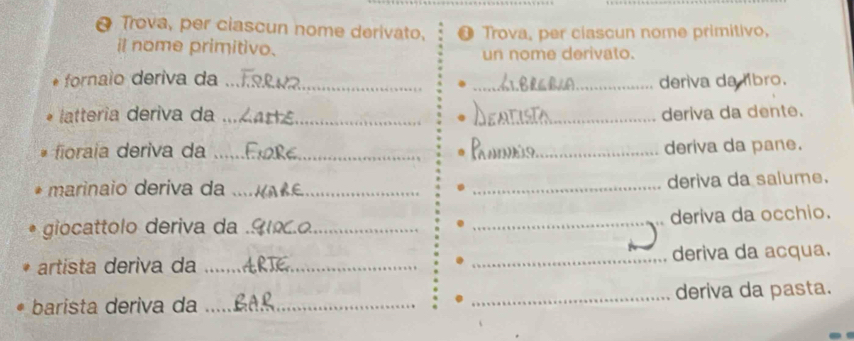 ❷ Trova, per ciascun nome derivato,
il nome primitivo.
• fornaio deriva da ...FORNO...
• latteria deriva da ...LATTE...
• fioraia deriva da ...FIORE...
• marinaio deriva da ...MARE...
• giocattolo deriva da ...GIOCO...
• artista deriva da ...ARTE...
• barista deriva da ...BAR...
Trova, per ciascun nome primitivo,
un nome derivato.
• ...LIBRERIA... deriva da libro.
• DENTISTA... deriva da dente.
• ... deriva da pane.
• ... deriva da salume.
• ... deriva da occhio.
• ... deriva da acqua.
• ... deriva da pasta.